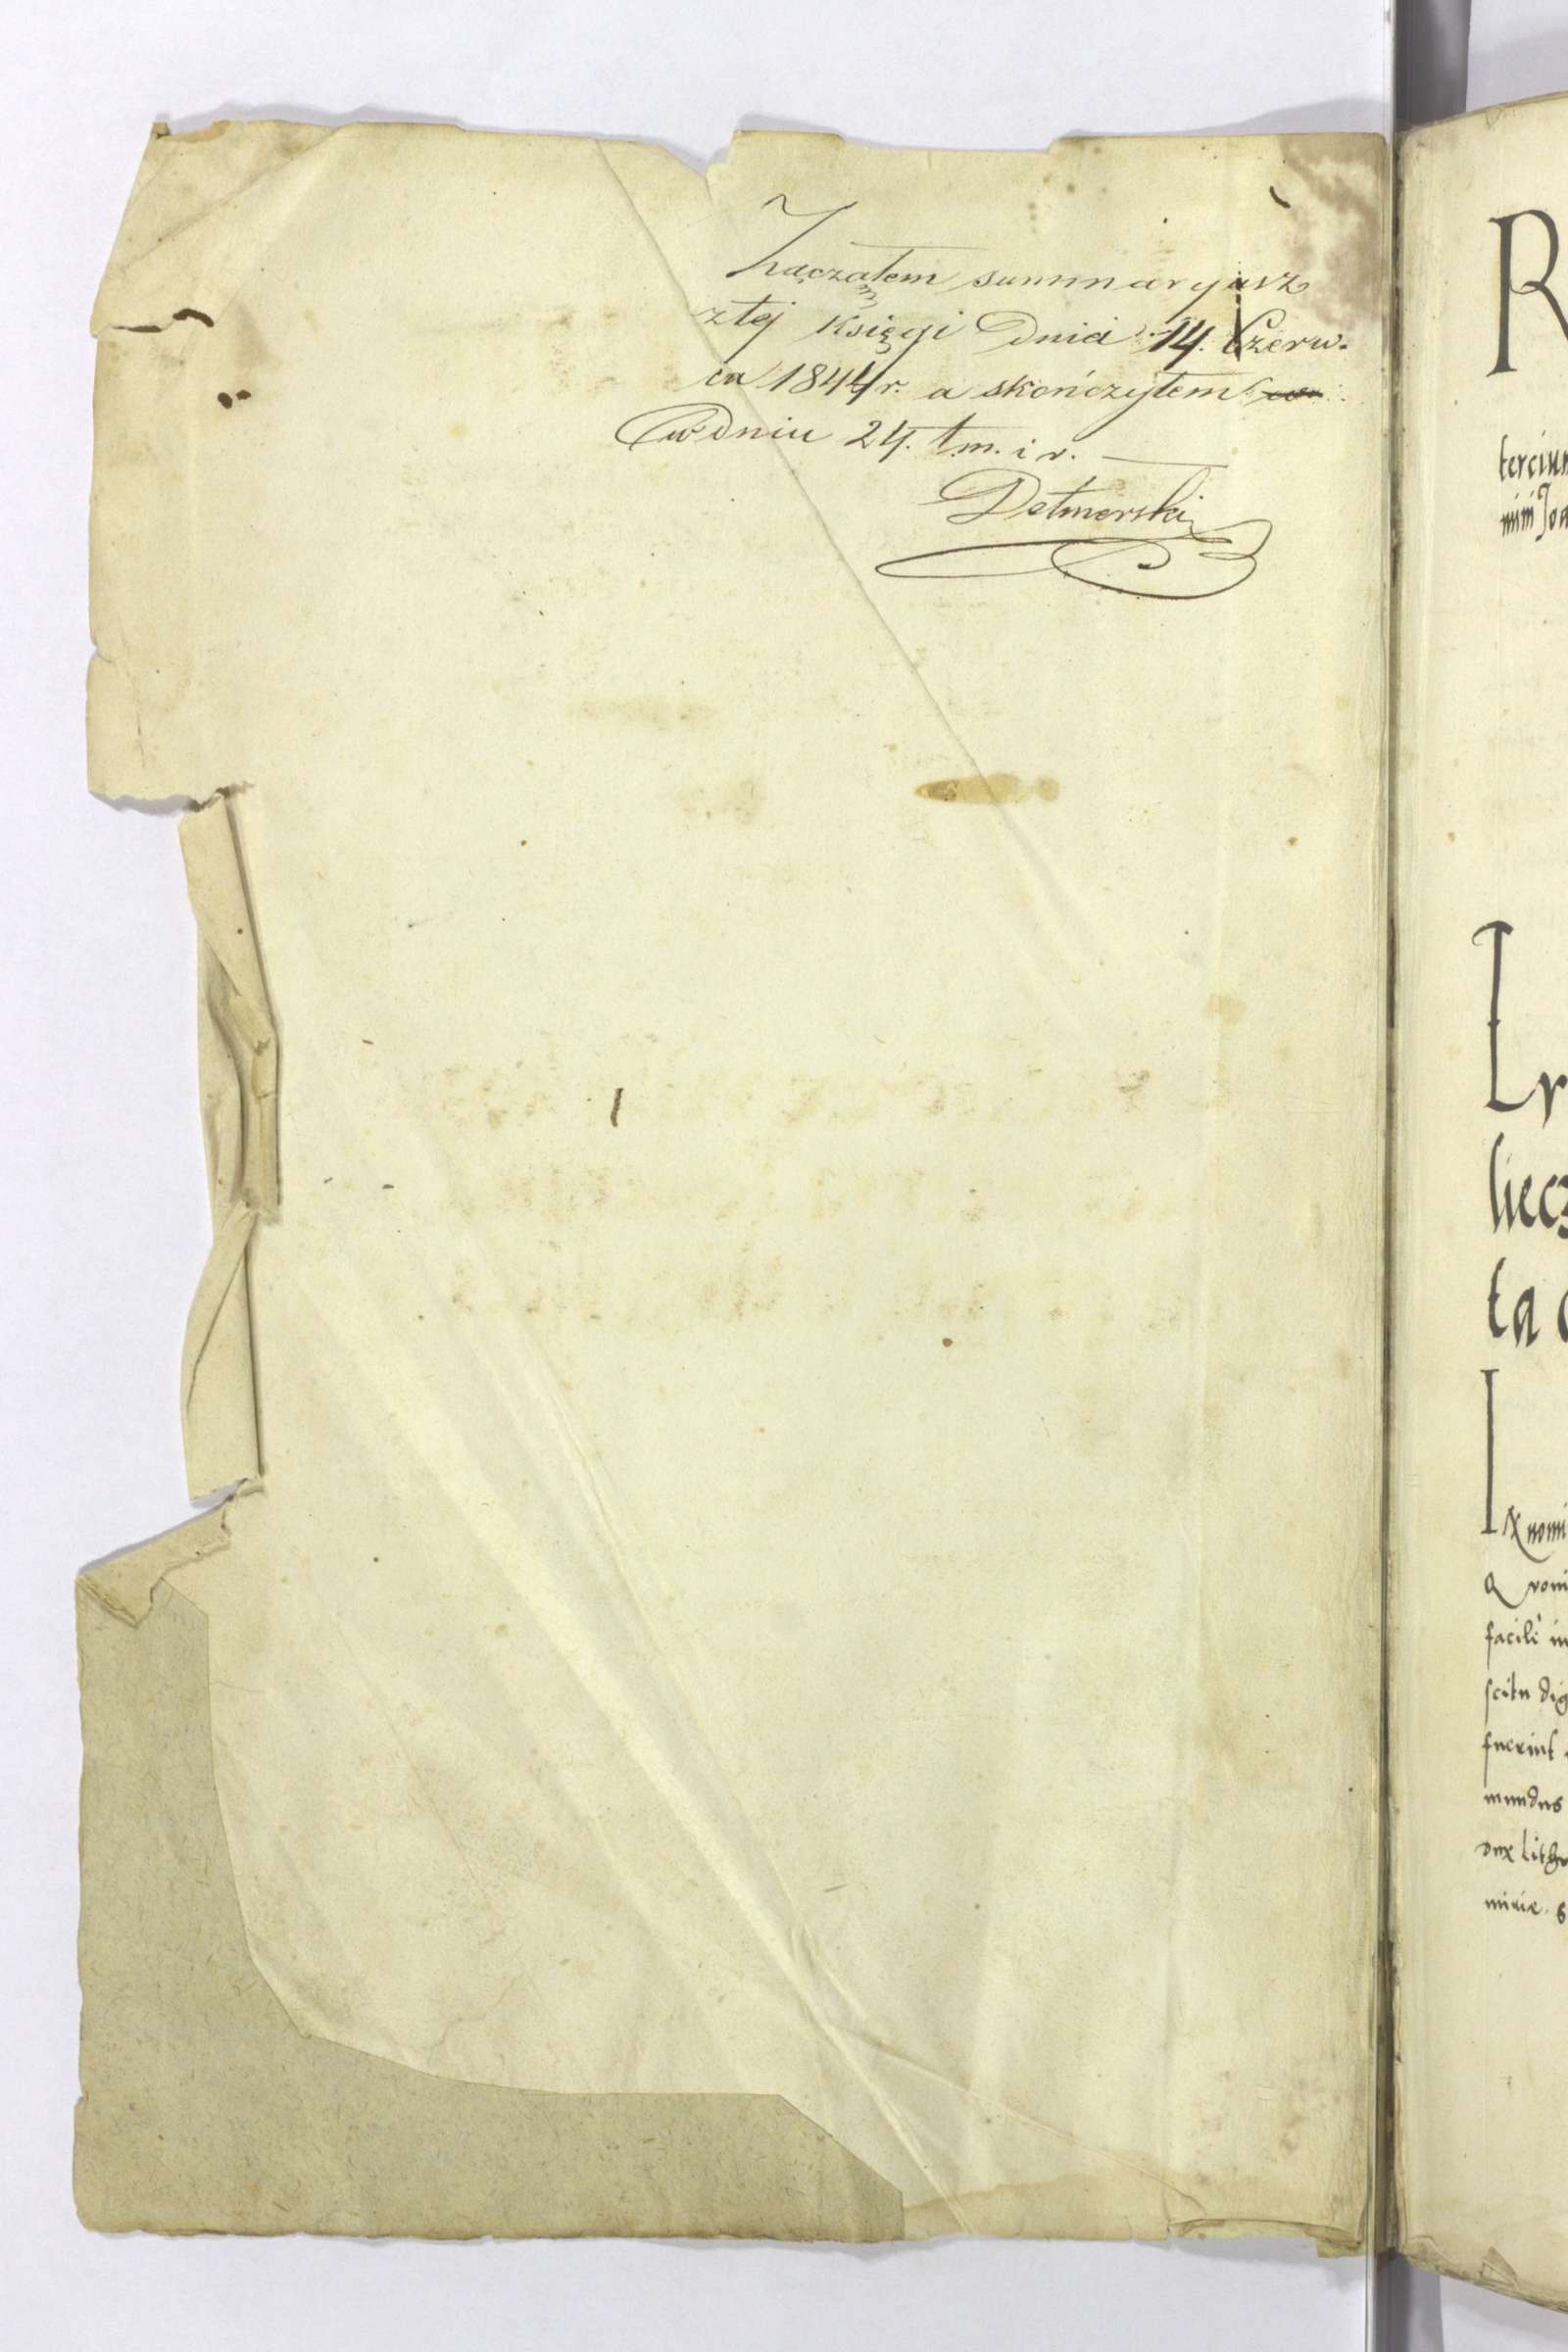 Zacząłem summaryusz
z tej Księgi Dnia 14. Czerw-
ca 1844 r. a skończyłem
w Dniu 24. t.m. i r.
Detmerski
R
terciu
Joa
liecz
ta
nomi
facile in
scitu dig
fuerint
mundus
dux Lithu